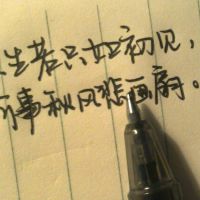 生若只如初见，
事秋风悲画扇。